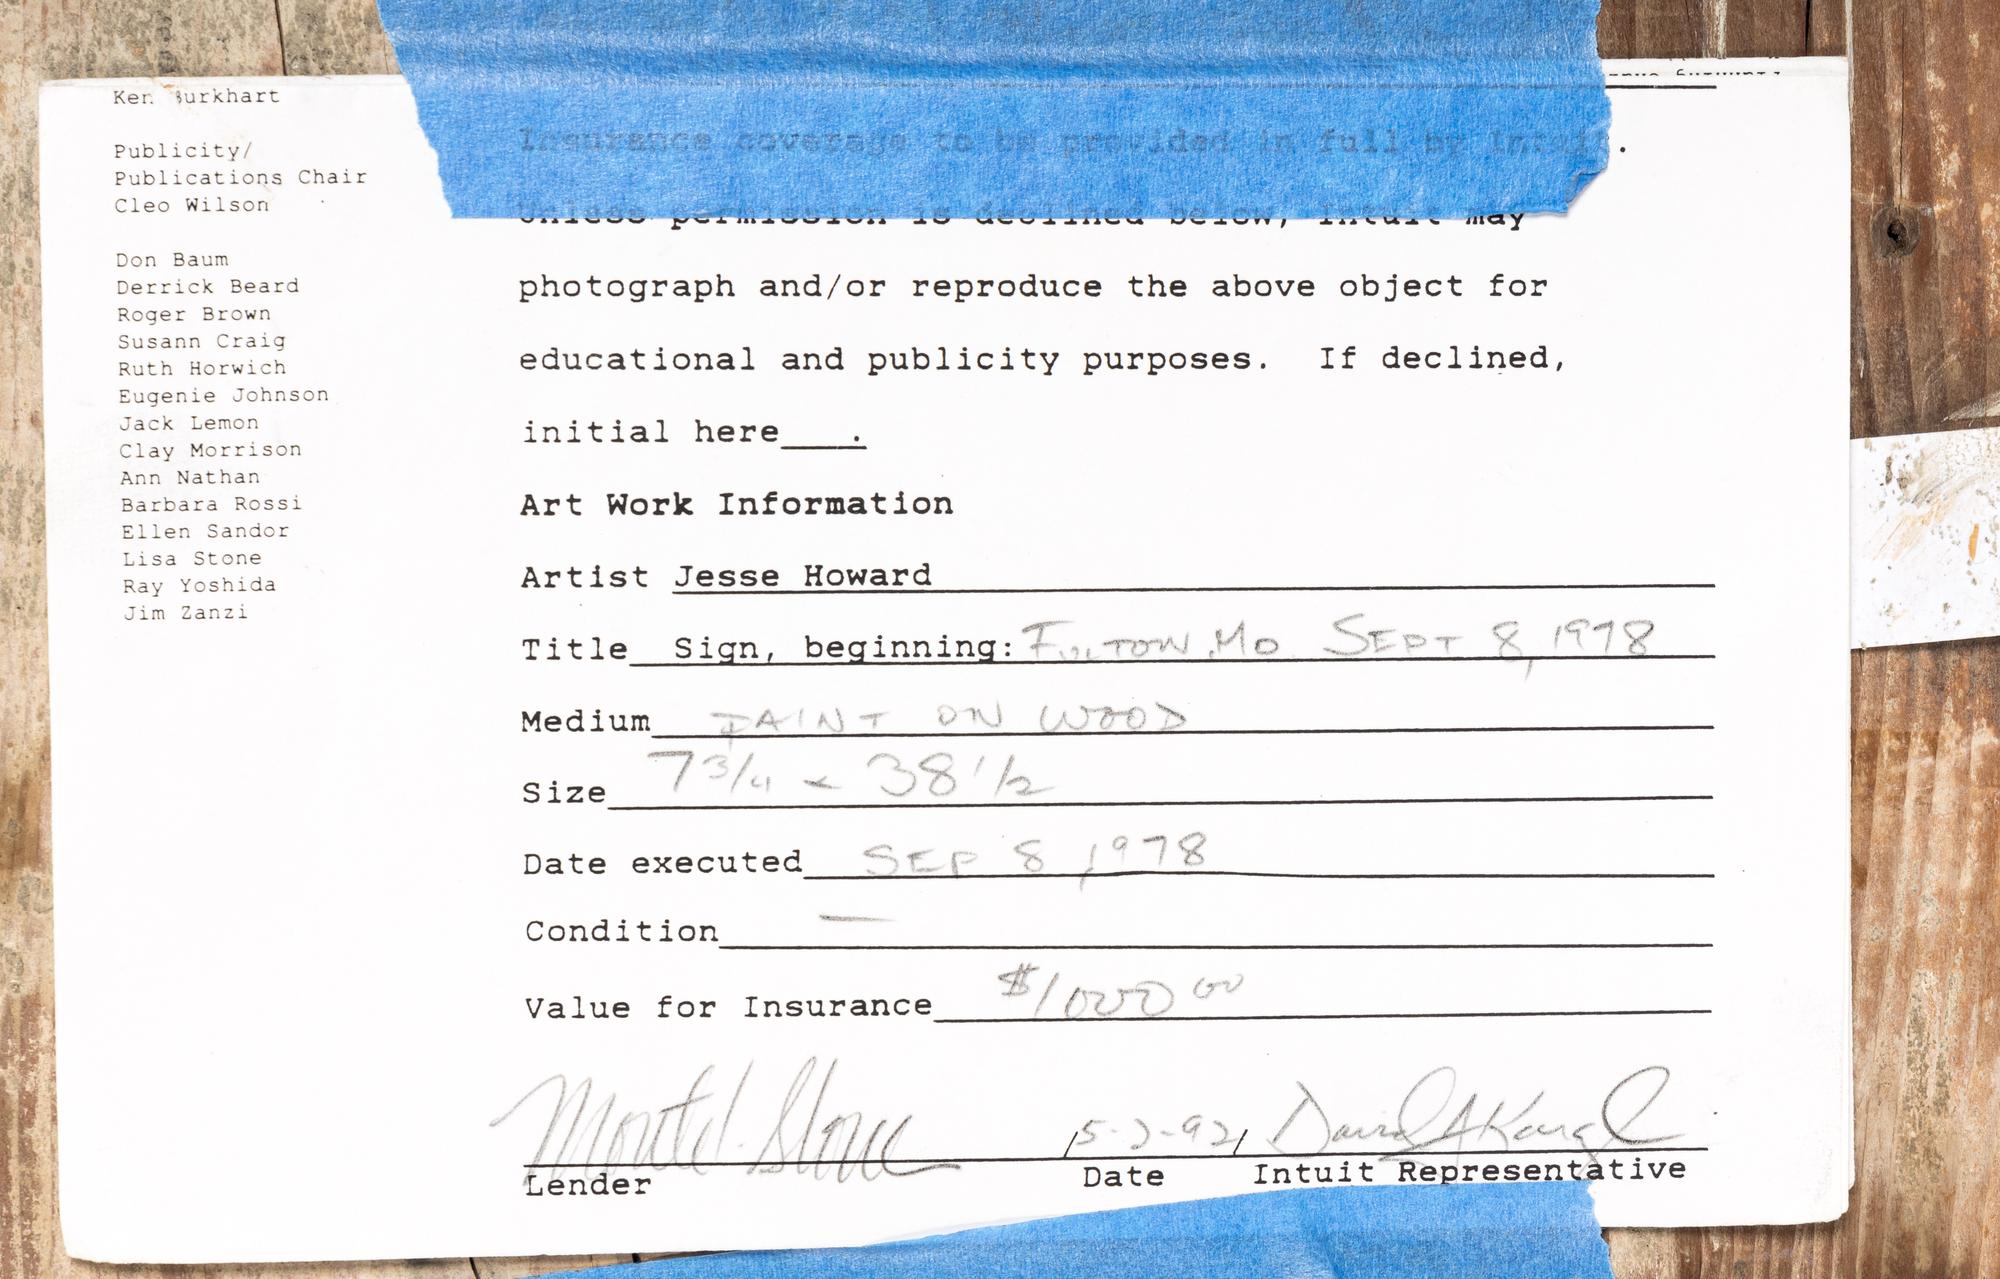 Ken Burkhart
Publicity/
Publications Chair
Cleo Wilson
Don Baum
Derrick Beard
Roger Brown
Susann Craig
Ruth Horwich
Eugenie Johnson
Jack Lemon
Clay Morrison
Ann Nathan
Barbara Rossi
Ellen Sandor
Lisa Stone
Ray Yoshida
Jim Zanzi
Insurance coverage to be provided in full by Intuit.
Unless permission is declined below, Intuit may
photograph and/or reproduce the above object for
educational and publicity purposes. If declined,
initial here___.
Art Work Information
Artist Jesse Howard
Title Sign, beginning: FULTON, MO. SEPT 8, 1978
Medium PAINT ON WOOD
Size 7 3/4 x 38 1/2
Date executed SEP 8, 1978
Condition —
Value for Insurance $1000 00
/5-2-92/ David A
Lender Date Intuit Representative